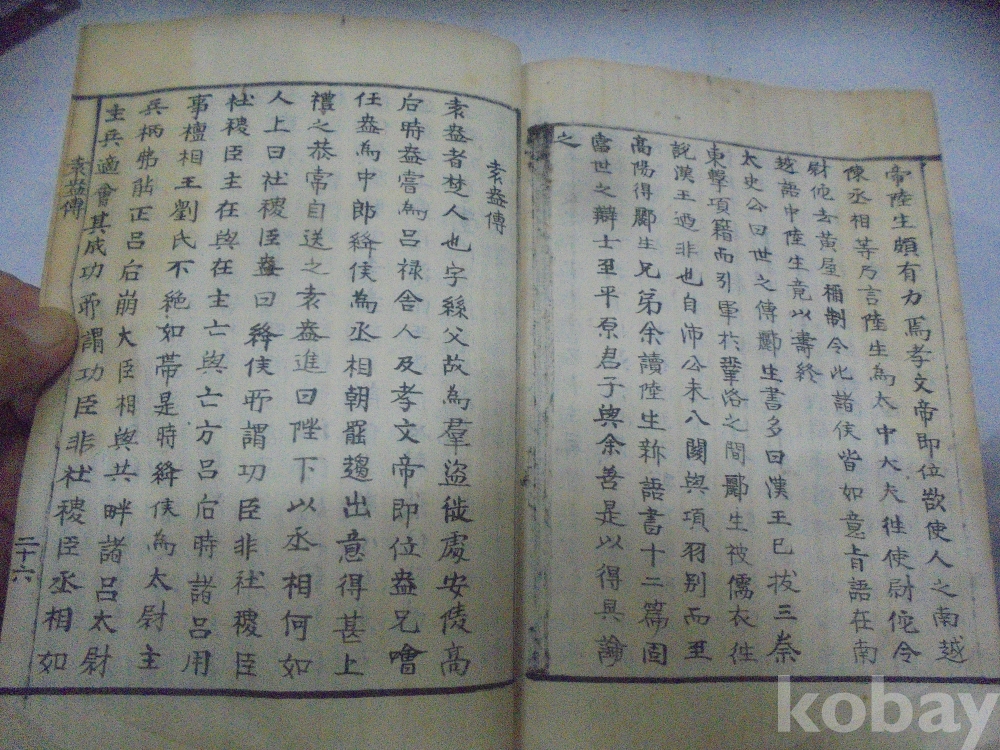 帝陸生頗有力焉孝文帝即位欲使人之南越
陳丞相等乃言陸生為太中大夫徃使尉佗令
尉佗去黃屋稱制令比諸侯皆如意旨語在南
越語中陸生竟以壽終
太史公曰世之傳酈生書多曰漢王已拔三秦
東擊項籍而引軍於鞏洛之間酈生被儒衣徃
說漢王迺非也自沛公未入關與項羽别而至
高陽得酈生兄弟余讀陸生新語書十二篇固
當世之辯士至平原君子與余善是以得具論
之
袁盎傳
袁盎者楚人也字絲父故為羣盜徙處安陵高
后時盎嘗為呂禄舍人及孝文帝即位盎兄噲
任盎為中郎絳侯為丞相朝罷趨出意得甚上
禮之恭常自送之袁盎進曰陛下以丞相何如
人上曰社稷臣盎曰絳侯所謂功臣非社稷臣
社稷臣主在與在主亡與亡方呂后時諸呂用
事檀相王劉氏不絶如帶是時絳侯為太尉主
兵柄弗能正呂后崩大臣相與共畔諸呂太尉
主兵適會其成功所謂功臣非社稷臣丞相如
袁盎傳
二十六
kobay